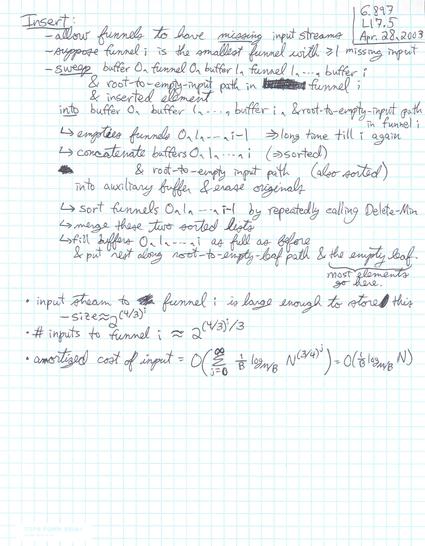 6.897
L17.5
Apr. 28, 2003
Insert:
- allow funnels to have missing input streams
- suppose funnel i is the smallest funnel with ≥1 missing input
- sweep buffer 0, funnel 0, buffer 1, funnel 1, ..., buffer i
& root-to-empty-input path in funnel i
& inserted element
into buffer 0, buffer 1, ..., buffer i, & root-to-empty-input path in funnel i
↳ empties funnels 0, 1, ..., i-1 ⇒ long time till i again
↳ concatenate buffers 0, 1, ..., i (⇒ sorted)
& root-to-empty input path (also sorted)
into auxiliary buffer & erase originals
↳ sort funnels 0, 1, ..., i-1 by repeatedly calling Delete-Min
↳ merge these two sorted lists
↳ fill buffers 0, 1, ..., i as full as before
& put rest along root-to-empty-leaf path & the empty leaf.
most elements go here.
• input stream to funnel i is large enough to store this
- size ≈ 2^(4/3)^i
• # inputs to funnel i ≈ 2^(4/3)^i/3
• amortized cost of input = O(∑_{j=0}^∞ 1/B log_{M/B} N^(3/4)^j) = O(1/B log_{M/B} N)